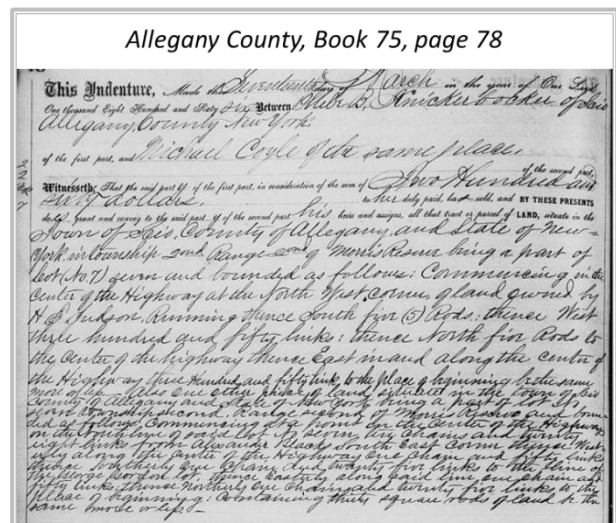 Allegany County, Book 75, page 78
This Indenture, Made the Seventeenth day of March in the year of Our Lord
One thousand Eight Hundred and Sixty Between B. Knickerbocker of
Allegany County New York.
of the first part, and Michael Coyle of the same place,
of the second part,
Witnesseth, That the said part y of the first part, in consideration of the sum of Two Hundred and
Sixty dollars. to her duly paid, has sold, and BY THESE PRESENTS
do es grant and convey to the said part y of the second part his heirs and assigns, all that tract or parcel of LAND, situate in the
Town of Scio, County of Allegany, and State of New-
York in township 2ond Range 2ond of Morris Reserve being a part of
Lot (No. 7) seven and bounded as follows: Commencing in the
Center of the Highway at the North West corner of land owned by
H Judson. Running thence South five (5) Rods: thence West
three hundred and fifty links: thence North five Rods to
the Center of the highway thence East in and along the center of
the Highway three Hundred and fifty link to the place of beginning be the same
more or less. Also one other piece of land situated in the town of Scio
County of Allegany and State of New York being a part of Lot No
seven township second. Range second of Morris Reserve and boun-
ded as follows, Commencing at a point in the Center of the Highway
on the line of said lot No seven, five chains and twenty
eight links from North East Corner thence West-
erly along the center of the Highway one chain and fifty links
thence southerly one chain and twenty five links to the line of
the George Gordon lot thence easterly along said line one chain and
fifty links; thence northerly one chain and twenty five links to the
place of beginning; Containing thirty square rods of land be the
same more or less -